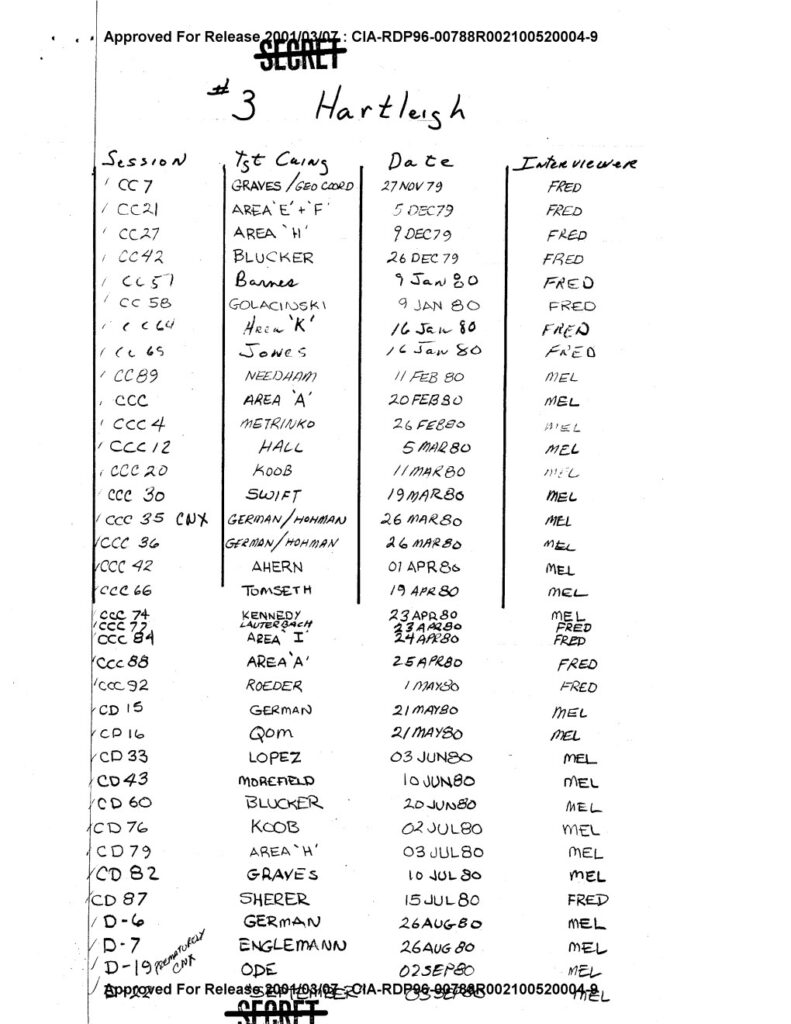 Approved For Release 2001/03/07 : CIA-RDP96-00788R002100520004-9
SECRET
#3 Hartleigh
Session Tgt Cuing Date Interviewer
CC 7 GRAVES/GEO COORD 27 NOV 79 FRED
CC21 AREA 'E' + 'F' 5 DEC79 FRED
CC27 AREA 'H' 9 DEC79 FRED
CC42 BLUCKER 26 DEC 79 FRED
CC 57 Barnes 9 Jan 80 FRED
CC 58 GOLACINSKI 9 JAN 80 FRED
CC 64 Area 'K' 16 Jan 80 FRED
CC 65 Jones 16 Jan 80 FRED
CC89 NEEDHAM 11 FEB 80 MEL
CCC AREA 'A' 20 FEB 80 MEL
CCC 4 METRINKO 26 FEB80 MEL
CCC 12 HALL 5 MAR 80 MEL
CCC 20 KOOB 11 MAR 80 MEL
CCC 30 SWIFT 19 MAR 80 MEL
CCC 35 CNX GERMAN/HOHMAN 26 MAR 80 MEL
CCC 36 GERMAN/HOHMAN 26 MAR 80 MEL
CCC 42 AHERN 01 APR 80 MEL
CCC 66 TOMSETH 19 APR 80 MEL
CCC 74 KENNEDY 23 APR 80 MEL
CCC 77 LAUTERBACH 23 APR 80 FRED
CCC 84 AREA 'I' 24 APR 80 FRED
CCC 88 AREA 'A' 25 APR 80 FRED
CCC 92 ROEDER 1 MAY 80 FRED
CD 15 GERMAN 21 MAY 80 MEL
CD 16 Qom 21 MAY 80 MEL
CD 33 LOPEZ 03 JUN 80 MEL
CD 43 MOREFIELD 10 JUN 80 MEL
CD 60 BLUCKER 20 JUN 80 MEL
CD 76 KOOB 02 JUL 80 MEL
CD 79 AREA 'H' 03 JUL 80 MEL
CD 82 GRAVES 10 JUL 80 MEL
CD 87 SHERER 15 JUL 80 FRED
D-6 GERMAN 26 AUG 80 MEL
D-7 ENGLEMANN 26 AUG 80 MEL
D-19 PREMATURELY CNX ODE 02 SEP 80 MEL
Approved For Release 2001/03/07 : CIA-RDP96-00788R002100520004-9
MEL
SECRET